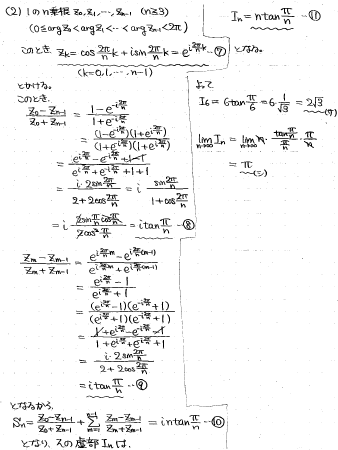 (2) 1のn乗根 z₀, z₁, …, zₙ₋₁ (n≧3)
(0≦argz₀<argz₁<…<argzₙ₋₁<2π)
このとき zₖ = cos 2π/n k + i sin 2π/n k = e^{i 2π/n k} …⑦
(k=0,1,…,n-1)
とかける。
このとき、
(z₀-zₙ₋₁)/(z₀+zₙ₋₁) = (1-e^{-i2π/n})/(1+e^{-i2π/n})
= (1-e^{-i2π/n})(1+e^{i2π/n})/(1+e^{-i2π/n})(1+e^{i2π/n})
= (e^{i2π/n}-e^{-i2π/n}+1-1)/(e^{i2π/n}+e^{-i2π/n}+1+1)
= (i·2sin 2π/n)/(2+2cos 2π/n) = i (sin 2π/n)/(1+cos 2π/n)
= i (2sin π/n cos π/n)/(2cos² π/n) = i tan π/n …⑧
(zₘ-zₘ₋₁)/(zₘ+zₘ₋₁) = (e^{i2π/n m}-e^{i2π/n(m-1)})/(e^{i2π/n m}+e^{i2π/n(m-1)})
= (e^{i2π/n}-1)/(e^{i2π/n}+1)
= (e^{i2π/n}-1)(e^{-i2π/n}+1)/(e^{i2π/n}+1)(e^{-i2π/n}+1)
= (1+e^{i2π/n}-e^{-i2π/n}-1)/(1+e^{i2π/n}+e^{-i2π/n}+1)
= (i·2sin 2π/n)/(2+2cos 2π/n)
= i tan π/n …⑨
となるから、
Sₙ = (z₀-zₙ₋₁)/(z₀+zₙ₋₁) + Σ_{m=1}^{n-1} (zₘ-zₘ₋₁)/(zₘ+zₘ₋₁) = i n tan π/n …⑩
となり、その虚部 Iₙ は、
Iₙ = n tan π/n …⑪
となる。
よって
I₆ = 6tan π/6 = 6·1/√3 = 2√3
lim_{n→∞} Iₙ = lim_{n→∞} n · (tan π/n)/(π/n) · π/n
= π